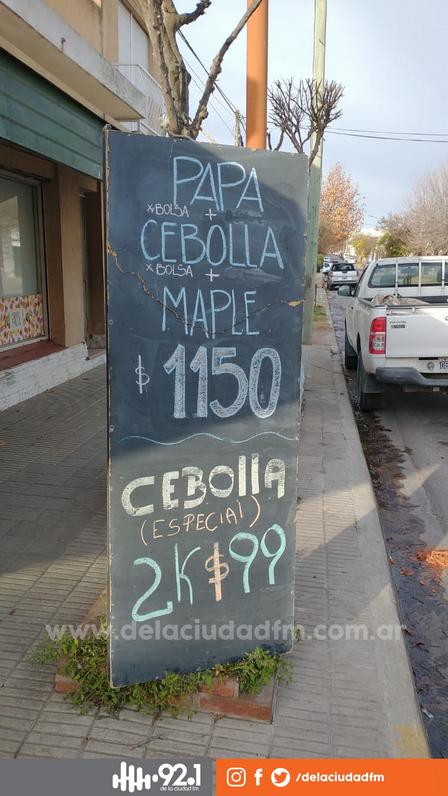 PAPA
xBOLSA +
CEBOLLA
xBOLSA +
MAPLE
$1150
CEBOllA
(ESPECIAl)
2K$99
www.delaciudadfm.com.ar
92.1
de la ciudad FM
/delaciudadfm